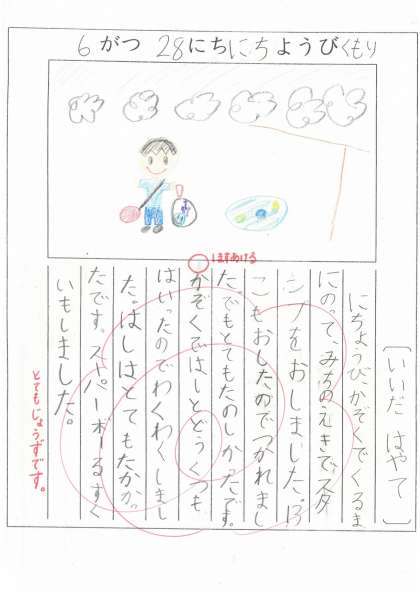 6がつ 28にちにちようびくもり
1ますあける
〔いいだ はやて〕
にちようびかぞくでくるま
にのって、みちのえきでスタ
ンプをおしました。13
こもおしたのでつかれまし
た。でもとてもたのしかったです。
かぞくではしとどうくつも
はいったのでわくわくしまし
た。はしはとてもたかかっ
たです。スーパーボーるすく
いもしました。
とてもじょうずです。